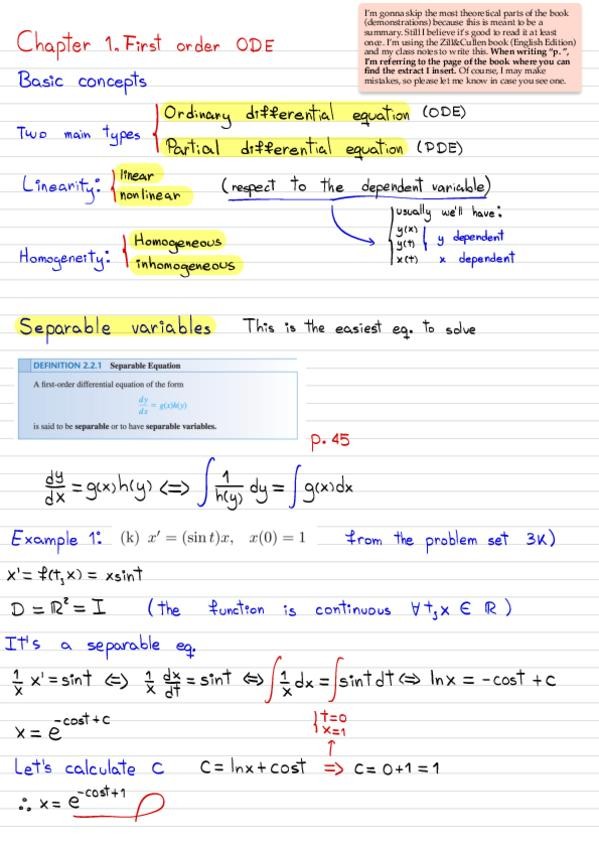 I'm gonna skip the most theoretical parts of the book
(demonstrations) because this is meant to be a
summary. Still I believe it's good to read it at least
once. I'm using the Zill&Cullen book (English Edition)
and my class notes to write this. When writing "p. ",
I'm referring to the page of the book where you can
find the extract I insert. Of course, I may make
mistakes, so please let me know in case you see one.
Chapter 1. First order ODE
Basic concepts
Two main types { Ordinary differential equation (ODE)
Partial differential equation (PDE)
Linearity: { linear
nonlinear
(respect to the dependent variable)
usually we'll have:
y(x)
y(t) } y dependent
x(t) x dependent
Homogeneity: { Homogeneous
inhomogeneous
Separable variables This is the easiest eq. to solve
DEFINITION 2.2.1 Separable Equation
A first-order differential equation of the form
dy/dx = g(x)h(y)
is said to be separable or to have separable variables.
p. 45
dy/dx = g(x)h(y) <=> ∫ 1/h(y) dy = ∫ g(x)dx
Example 1: (k) x′ = (sin t)x, x(0) = 1 from the problem set 3K)
x' = f(t,x) = xsint
D = ℝ² = I (the function is continuous ∀t,x ∈ ℝ)
It's a separable eq.
1/x x' = sint <=> 1/x dx/dt = sint <=> ∫ 1/x dx = ∫ sint dt <=> lnx = -cost + c
x = e^(-cost+c)
{ t=0
x=1
Let's calculate c C = lnx + cost => C = 0+1 = 1
∴ x = e^(-cost+1)